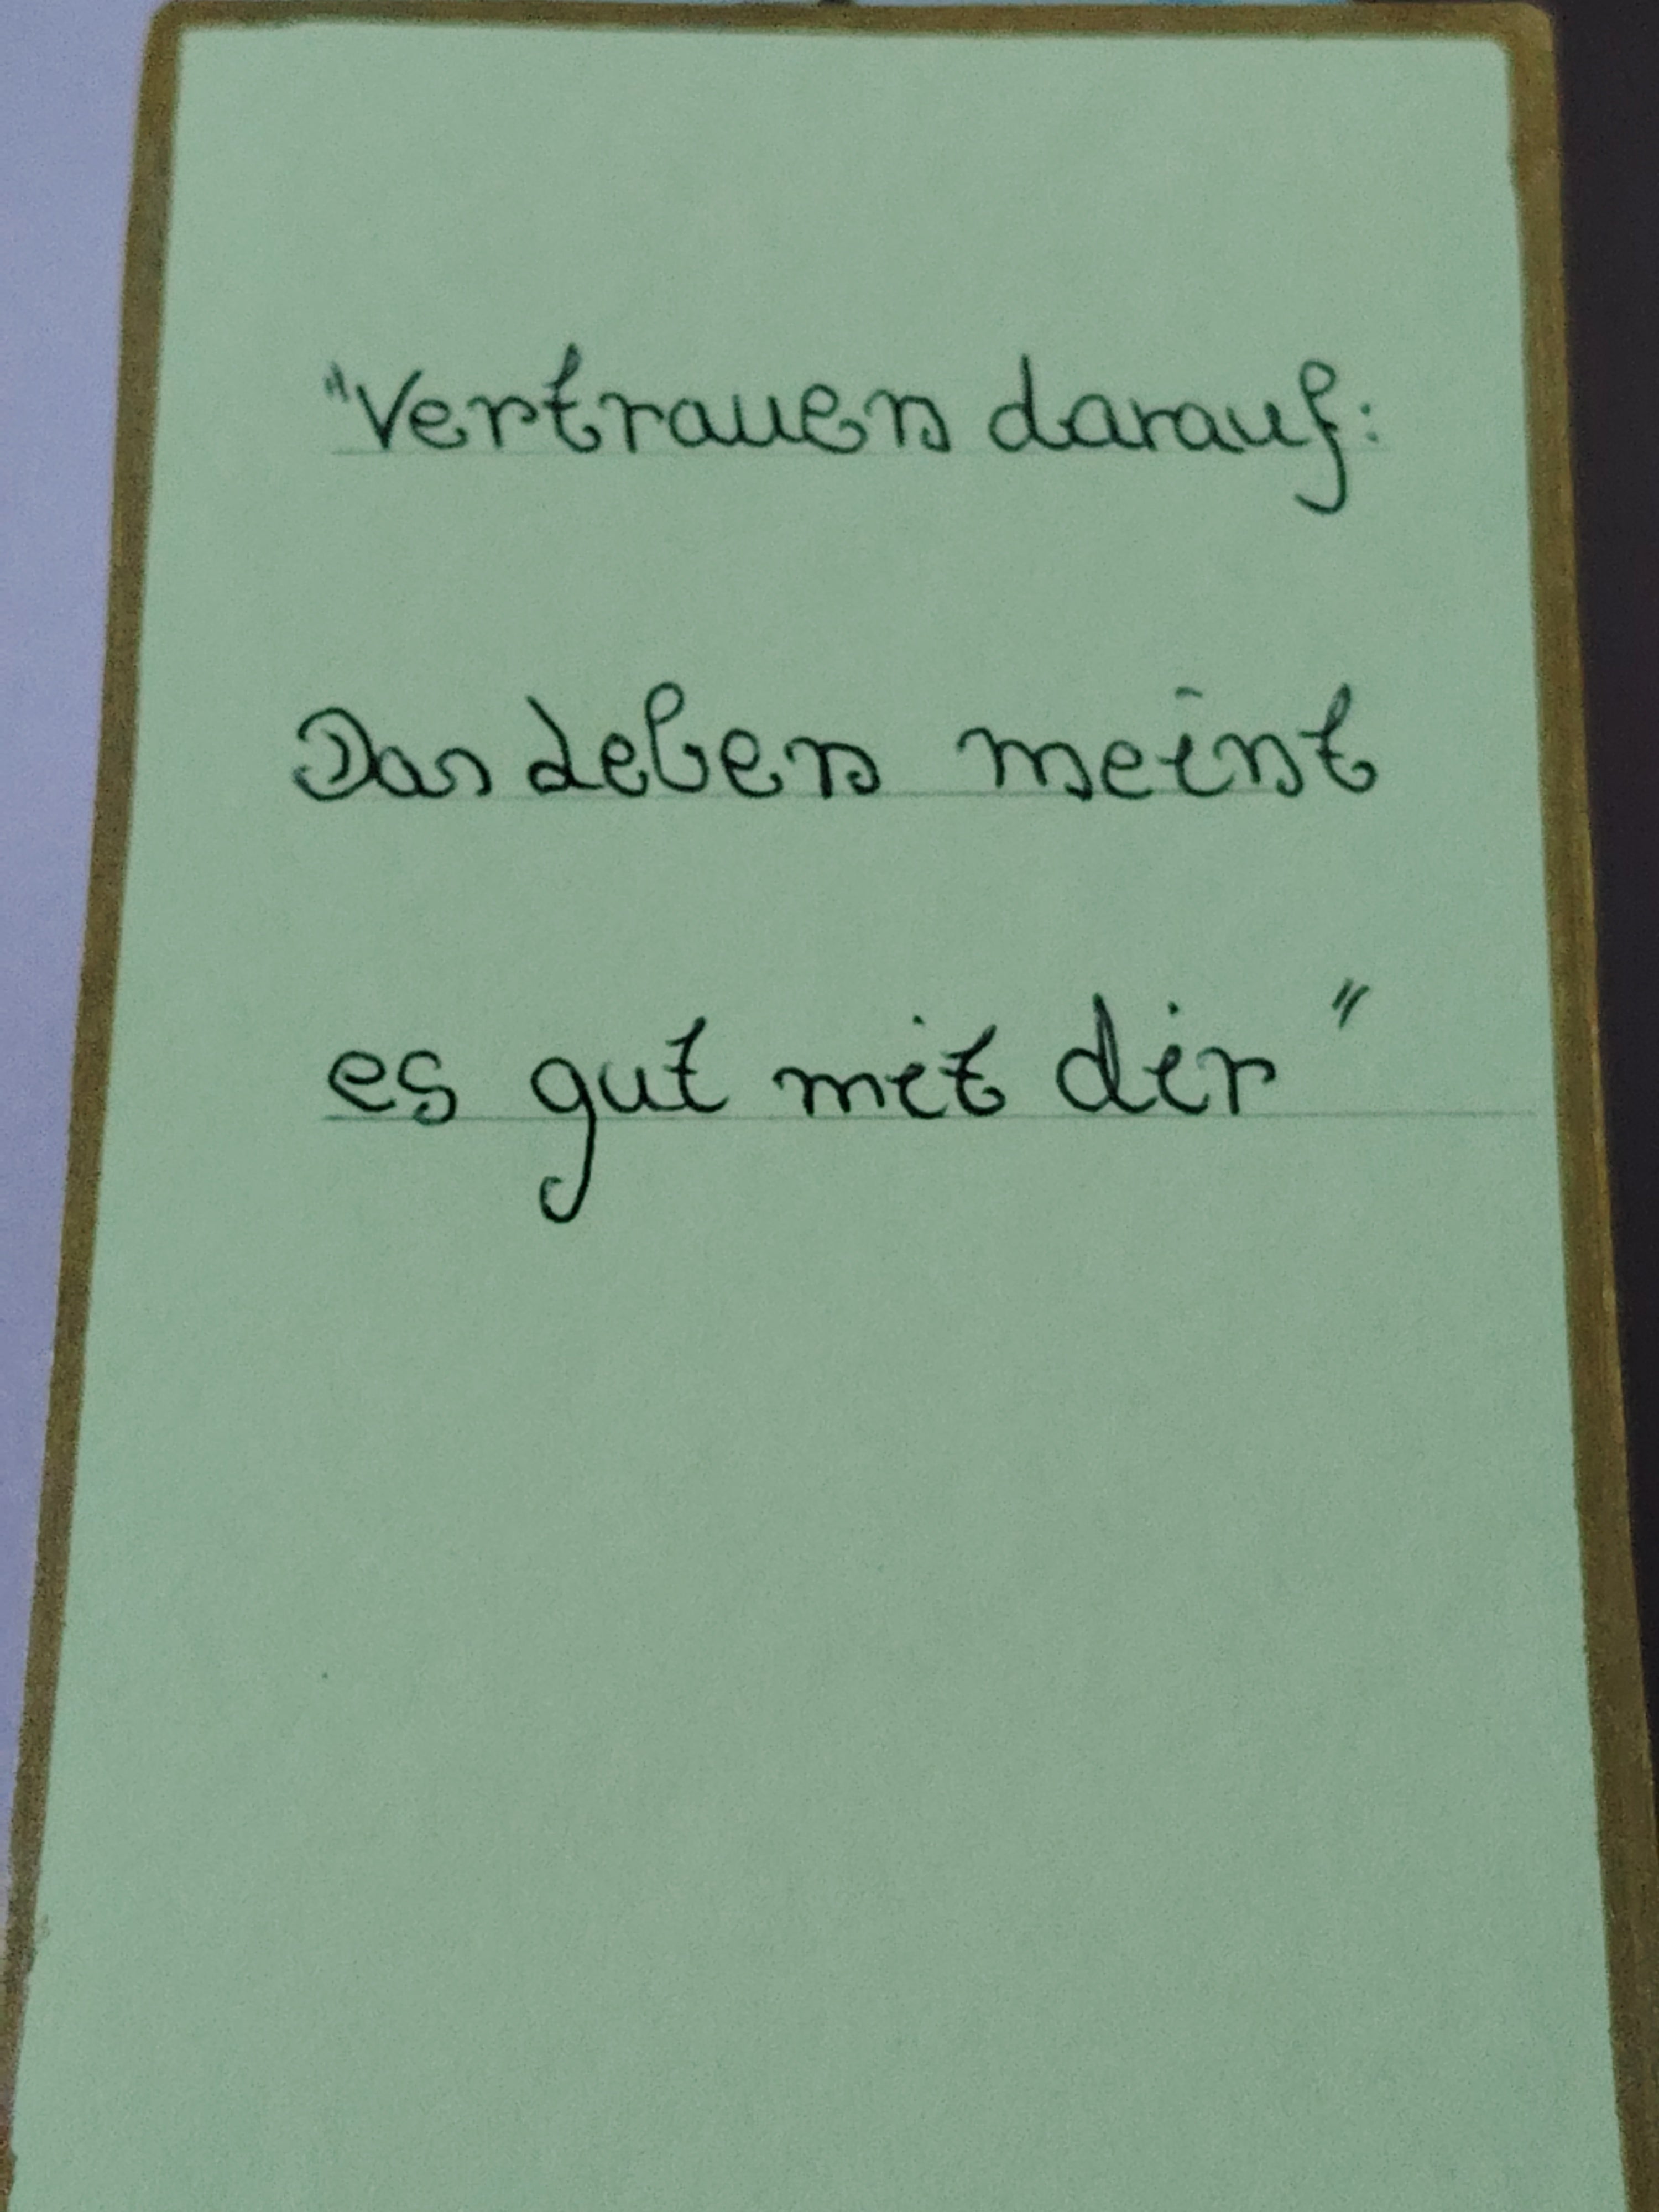 "Vertrauen darauf:
Das Leben meint
es gut mit dir"